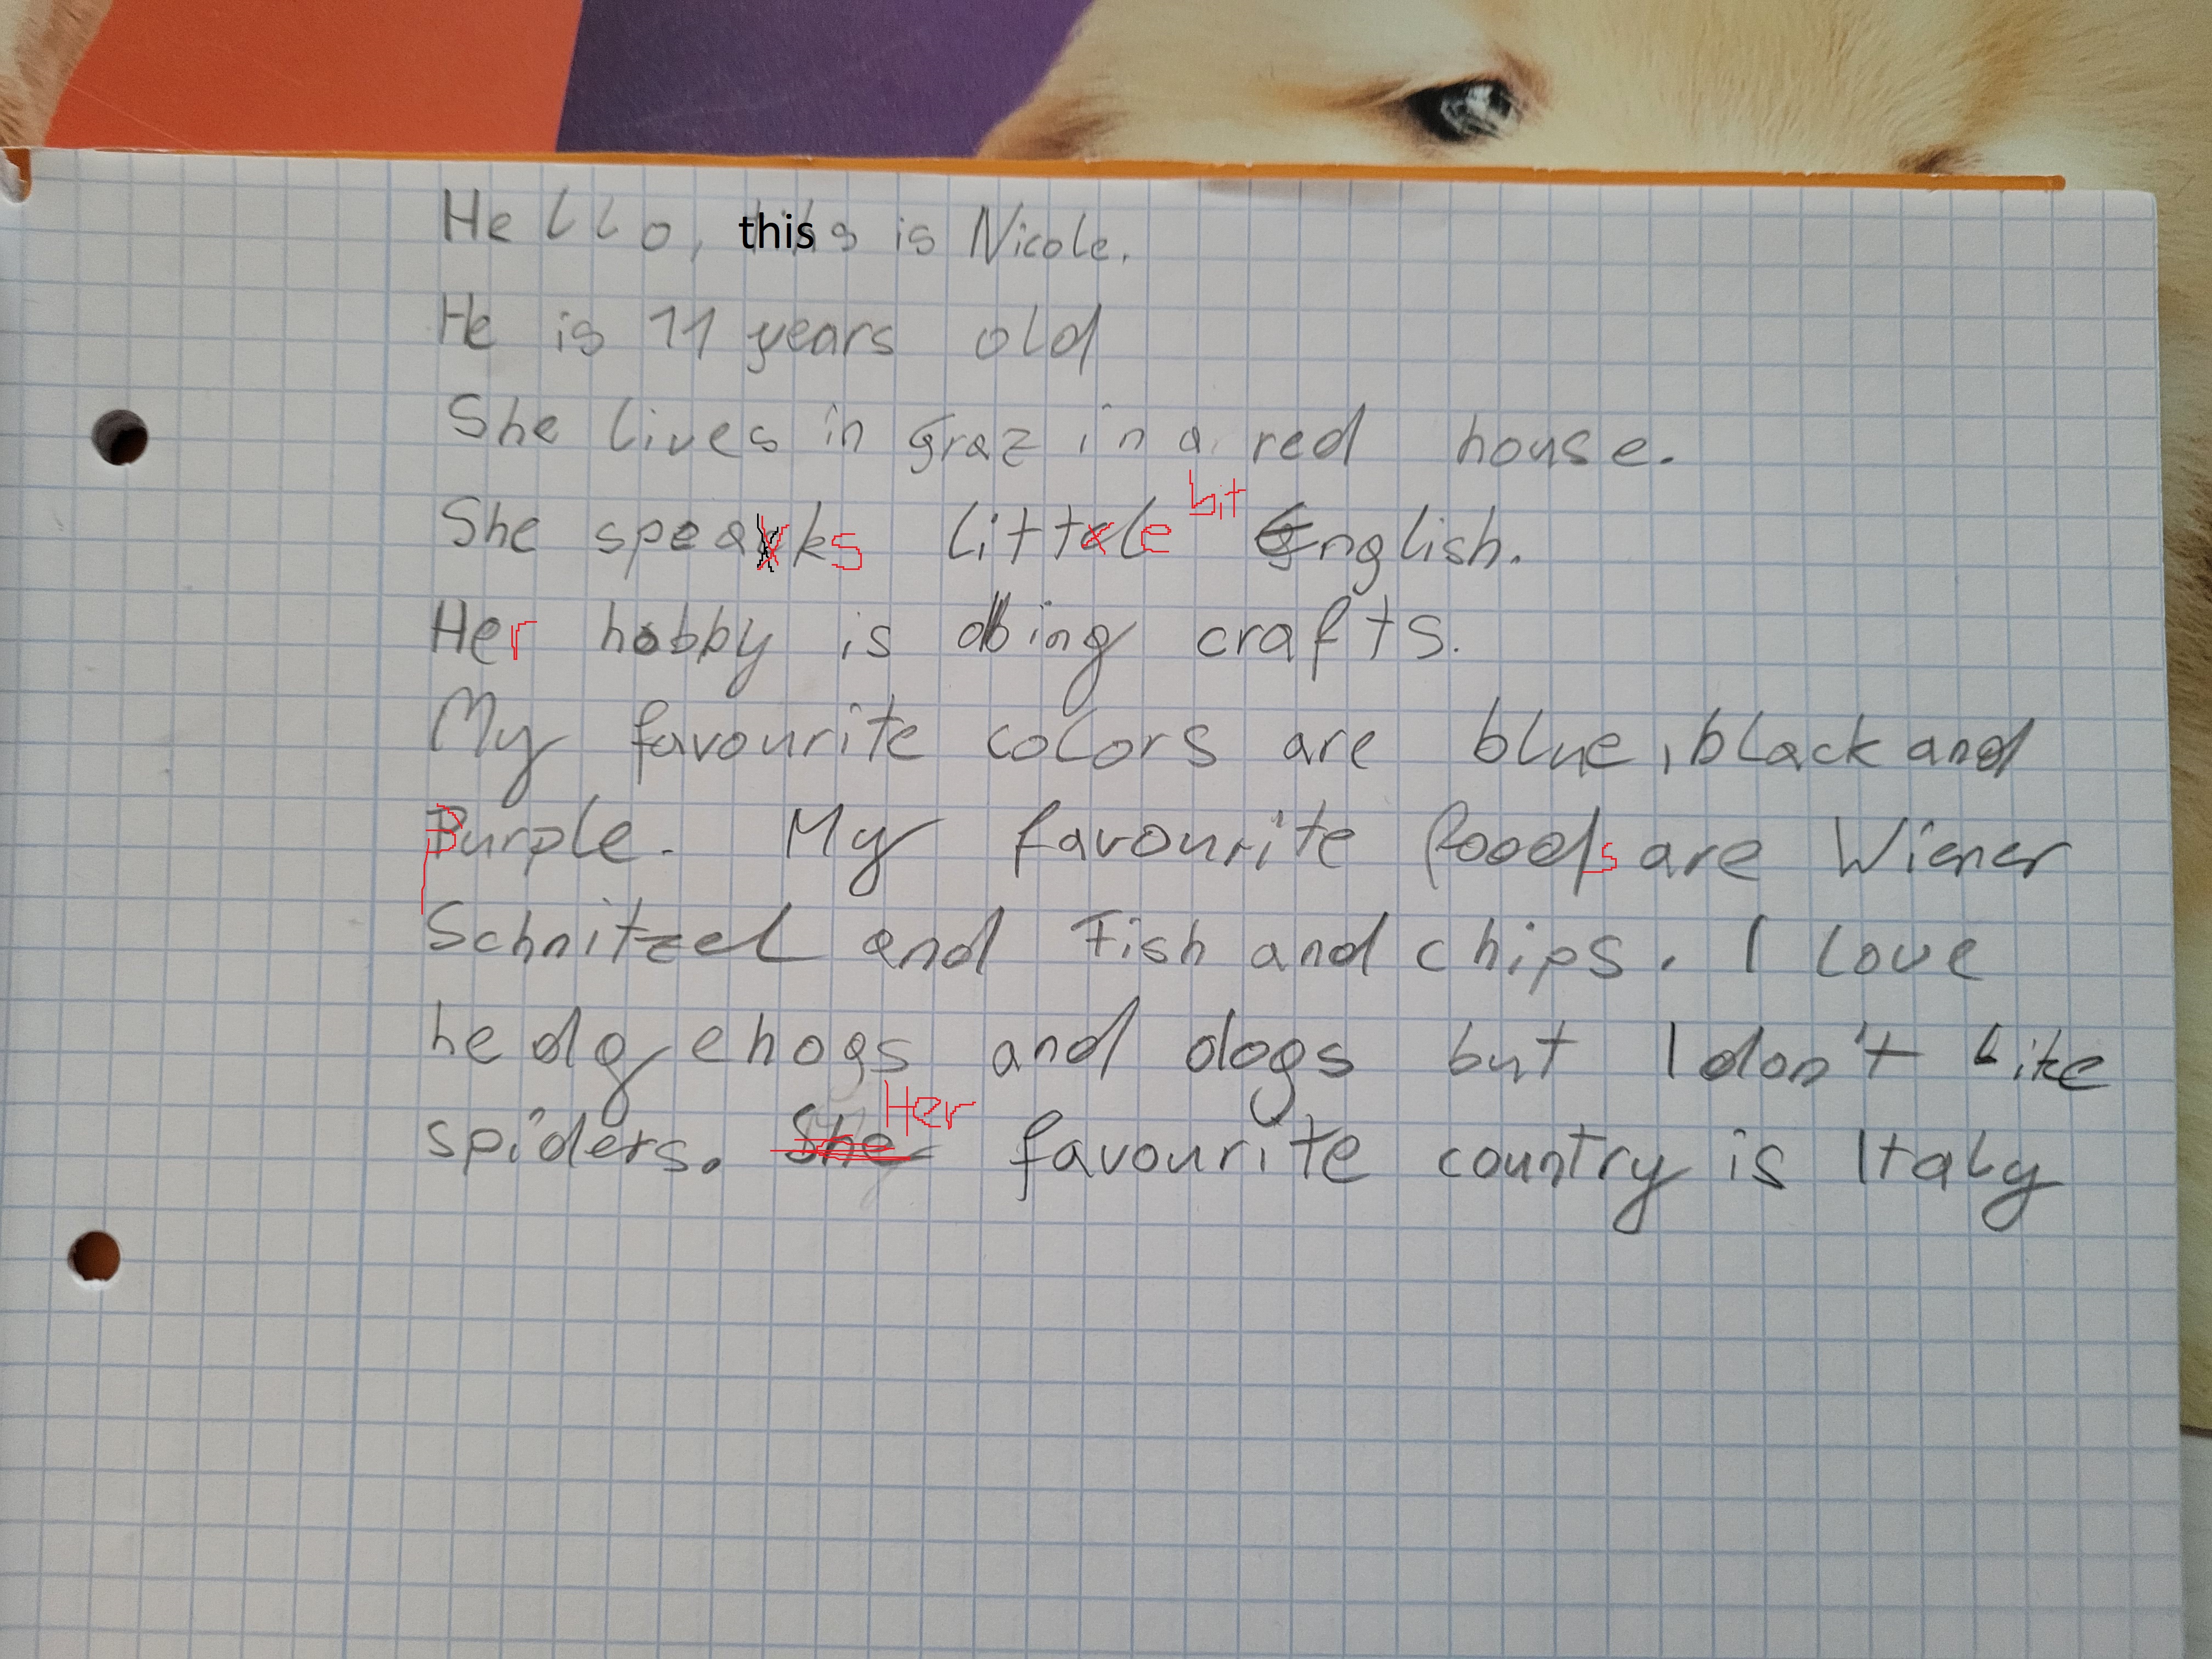 Hello, this is Nicole.
He is 11 years old
She lives in Graz in a red house.
She speaks little bit English.
Her hobby is doing crafts.
My favourite colors are blue, black and
Purple. My favourite foods are Wiener
Schnitzel and Fish and chips. I love
hedgehogs and dogs but I don't like
spiders. She Her favourite country is Italy